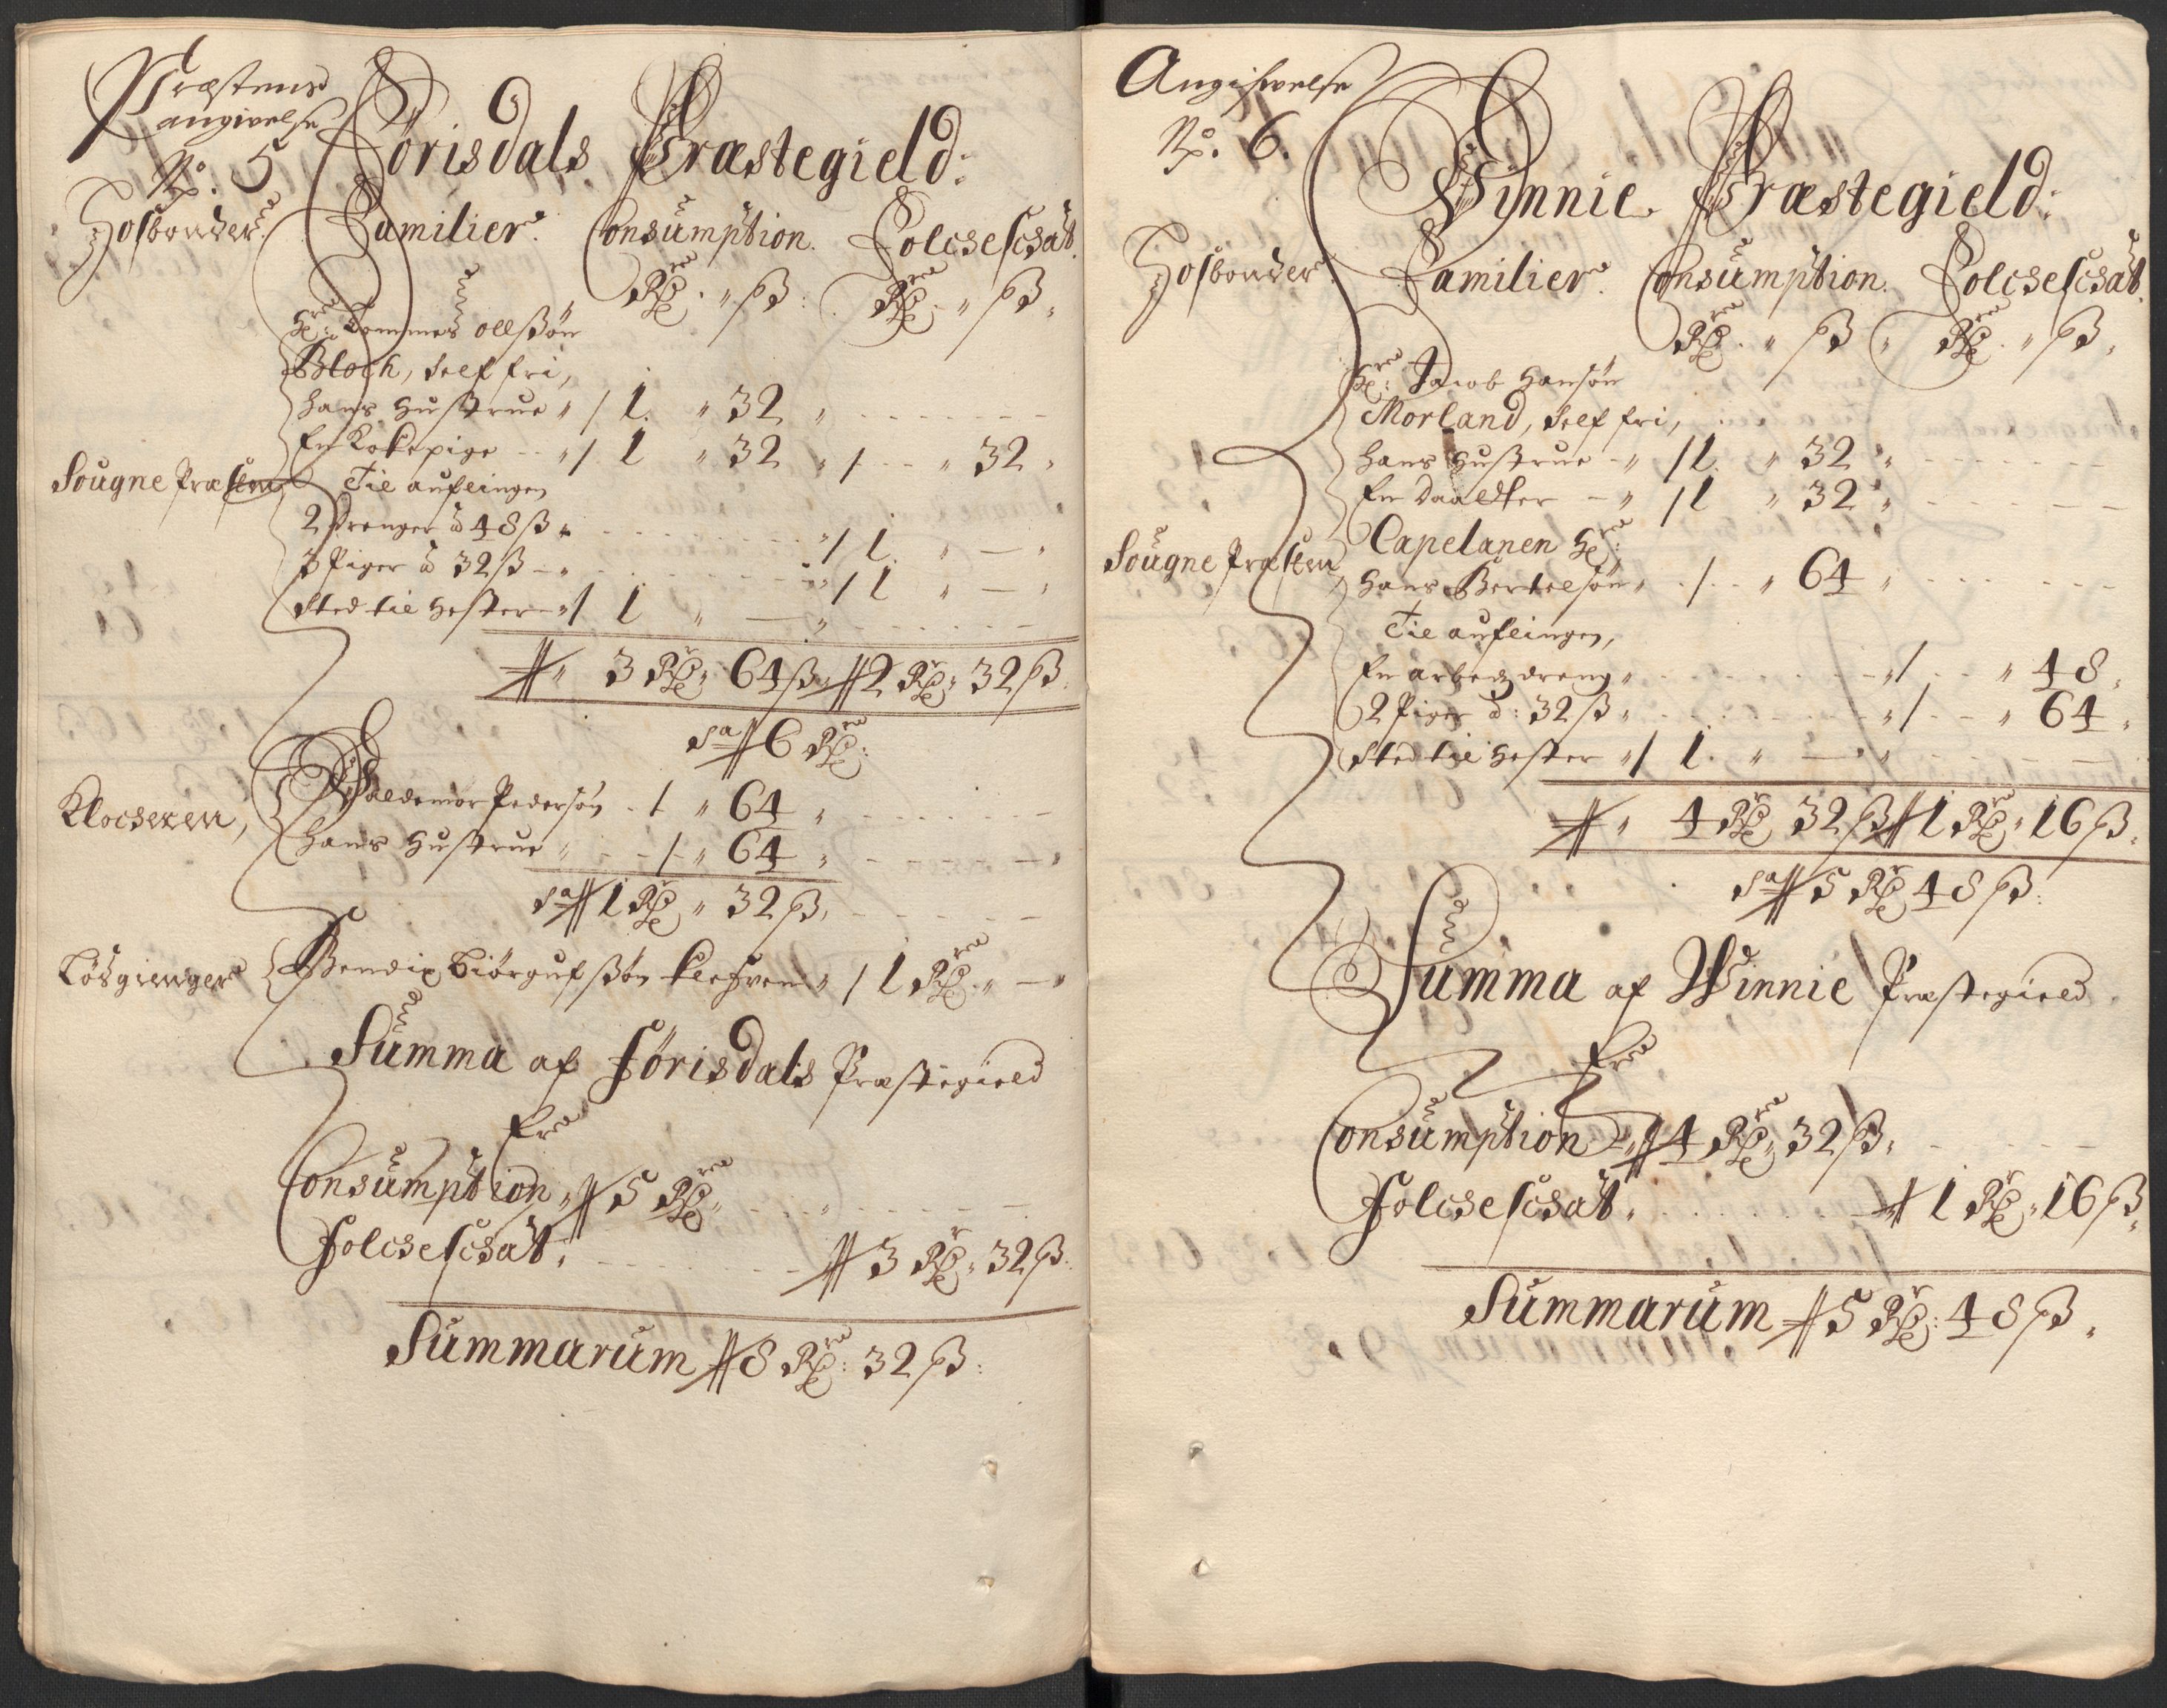 Præstens
angivelse
No. 5
Förisdals Præstegield:
Hosbonder. Familier. Consumption. Folcsescsat.
Rdr. " ß: Rdr. " ß.
Hr: Tommes Ollssön
Bloch, self fri,
hans Hustrue " / 1. " 32 "
En Kokepige - " / 1 " 32 " / - - " 32 "
Sougne Præsten
Til auflingen
2 Drenger à 48 ß " / 1. " — "
3 Piger à 32 ß - " / 1 " — "
Sted til Hester - " / 1 " — "
" 3 Rdr. 64 ß " 2 Rdr. 32 ß.
Sa 6 Rdr:
Klocseren,
Valdemor Pedersön - / " 64 "
hans Hustrue " - / - " 64 "
Sa 1 Rdr " 32 ß.
Lösgienger Bendix Biörgufssön " / 1 Rdr. " — "
Summa af Förisdals Præstegield
Er
Consumption " 5 Rdr.
Folcsescsat. 3 Rdr. 32 ß.
Summarum 8 Rdr: 32 ß:
Angifvelse
No. 6.
Winnie Præstegield:
Hosbonder. Familier. Consumption. Folcsescsat.
Rdr. " ß " Rdr. " ß.
Hr: Jacob Hansön
Morland, self fri,
hans Hustrue - " / 1. " 32 "
En Daatter - " / 1 " 32 "
Sougne Præsten
Capelanen Hr:
Hans Bertelsön " - / - " 64 "
Til auflingen,
En arbeqdreng " " / - - " 48 "
2 Piger à: 32 ß " " / - - " 64 "
Sted til Hester " / 1. " — "
" 4 Rdr 32 ß 1 Rdr. 16 ß.
Sa 5 Rdr 48 ß:
Summa af Winnie Præstegield
Er
Consumption " 4 Rdr. 32 ß.
Folcsescsat. 1 Rdr. 16 ß.
Summarum 5 Rdr: 48 ß.